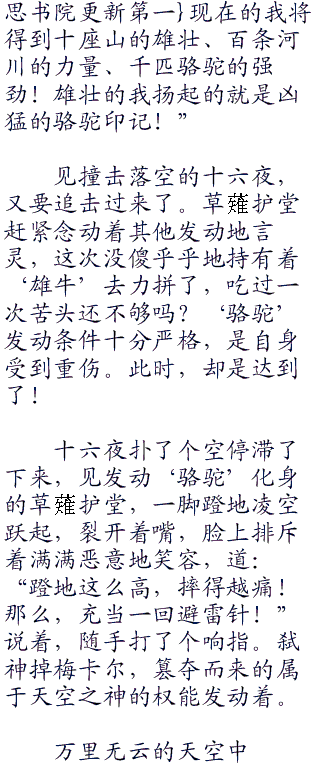 思书院更新第一}现在的我将
得到十座山的雄壮、百条河
川的力量、千匹骆驼的强
劲！雄壮的我扬起的就是凶
猛的骆驼印记！”
见撞击落空的十六夜，
又要追击过来了。草薙护堂
赶紧念动着其他发动地言
灵，这次没傻乎乎地持有着
‘雄牛’去力拼了，吃过一
次苦头还不够吗？‘骆驼’
发动条件十分严格，是自身
受到重伤。此时，却是达到
了！
十六夜扑了个空停滞了
下来，见发动‘骆驼’化身
的草薙护堂，一脚蹬地凌空
跃起，裂开着嘴，脸上排斥
着满满恶意地笑容，道：
“蹬地这么高，摔得越痛！
那么，充当一回避雷针！”
说着，随手打了个响指。弑
神掉梅卡尔，篡夺而来的属
于天空之神的权能发动着。
万里无云的天空中